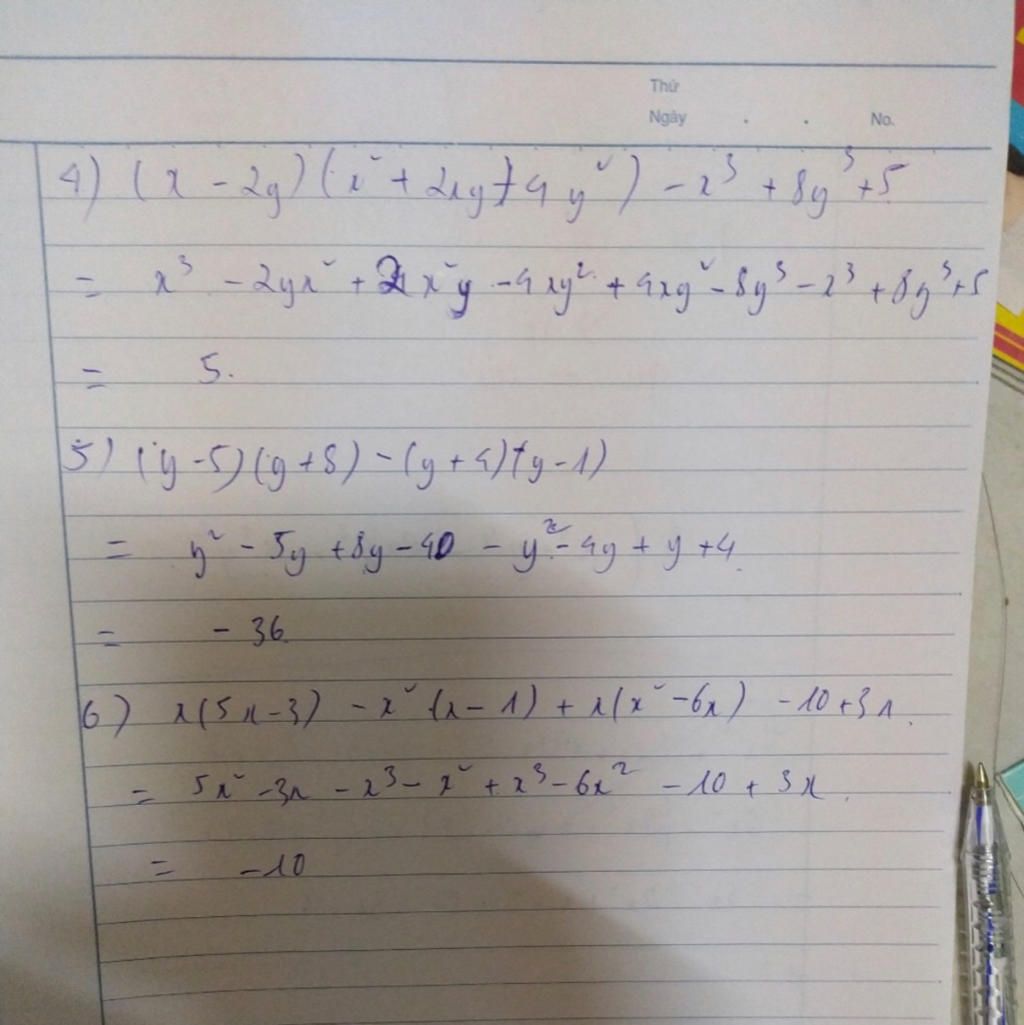 Thứ
Ngày . . No.
4) (x - 2y) (x² + 2xy + 4y²) - x³ + 8y³ + 5
= x³ - 2yx² + 2x²y - 4xy² + 4xy² - 8y³ - x³ + 8y³ + 5
= 5.
5) (y - 5) (y + 8) - (y + 4) (y - 1)
= y² - 5y + 8y - 40 - y² - 4y + y + 4
= - 36
6) x(5x - 3) - x² (x - 1) + x(x² - 6x) - 10 + 3x.
= 5x² - 3x - x³ - x² + x³ - 6x² - 10 + 3x.
= -10